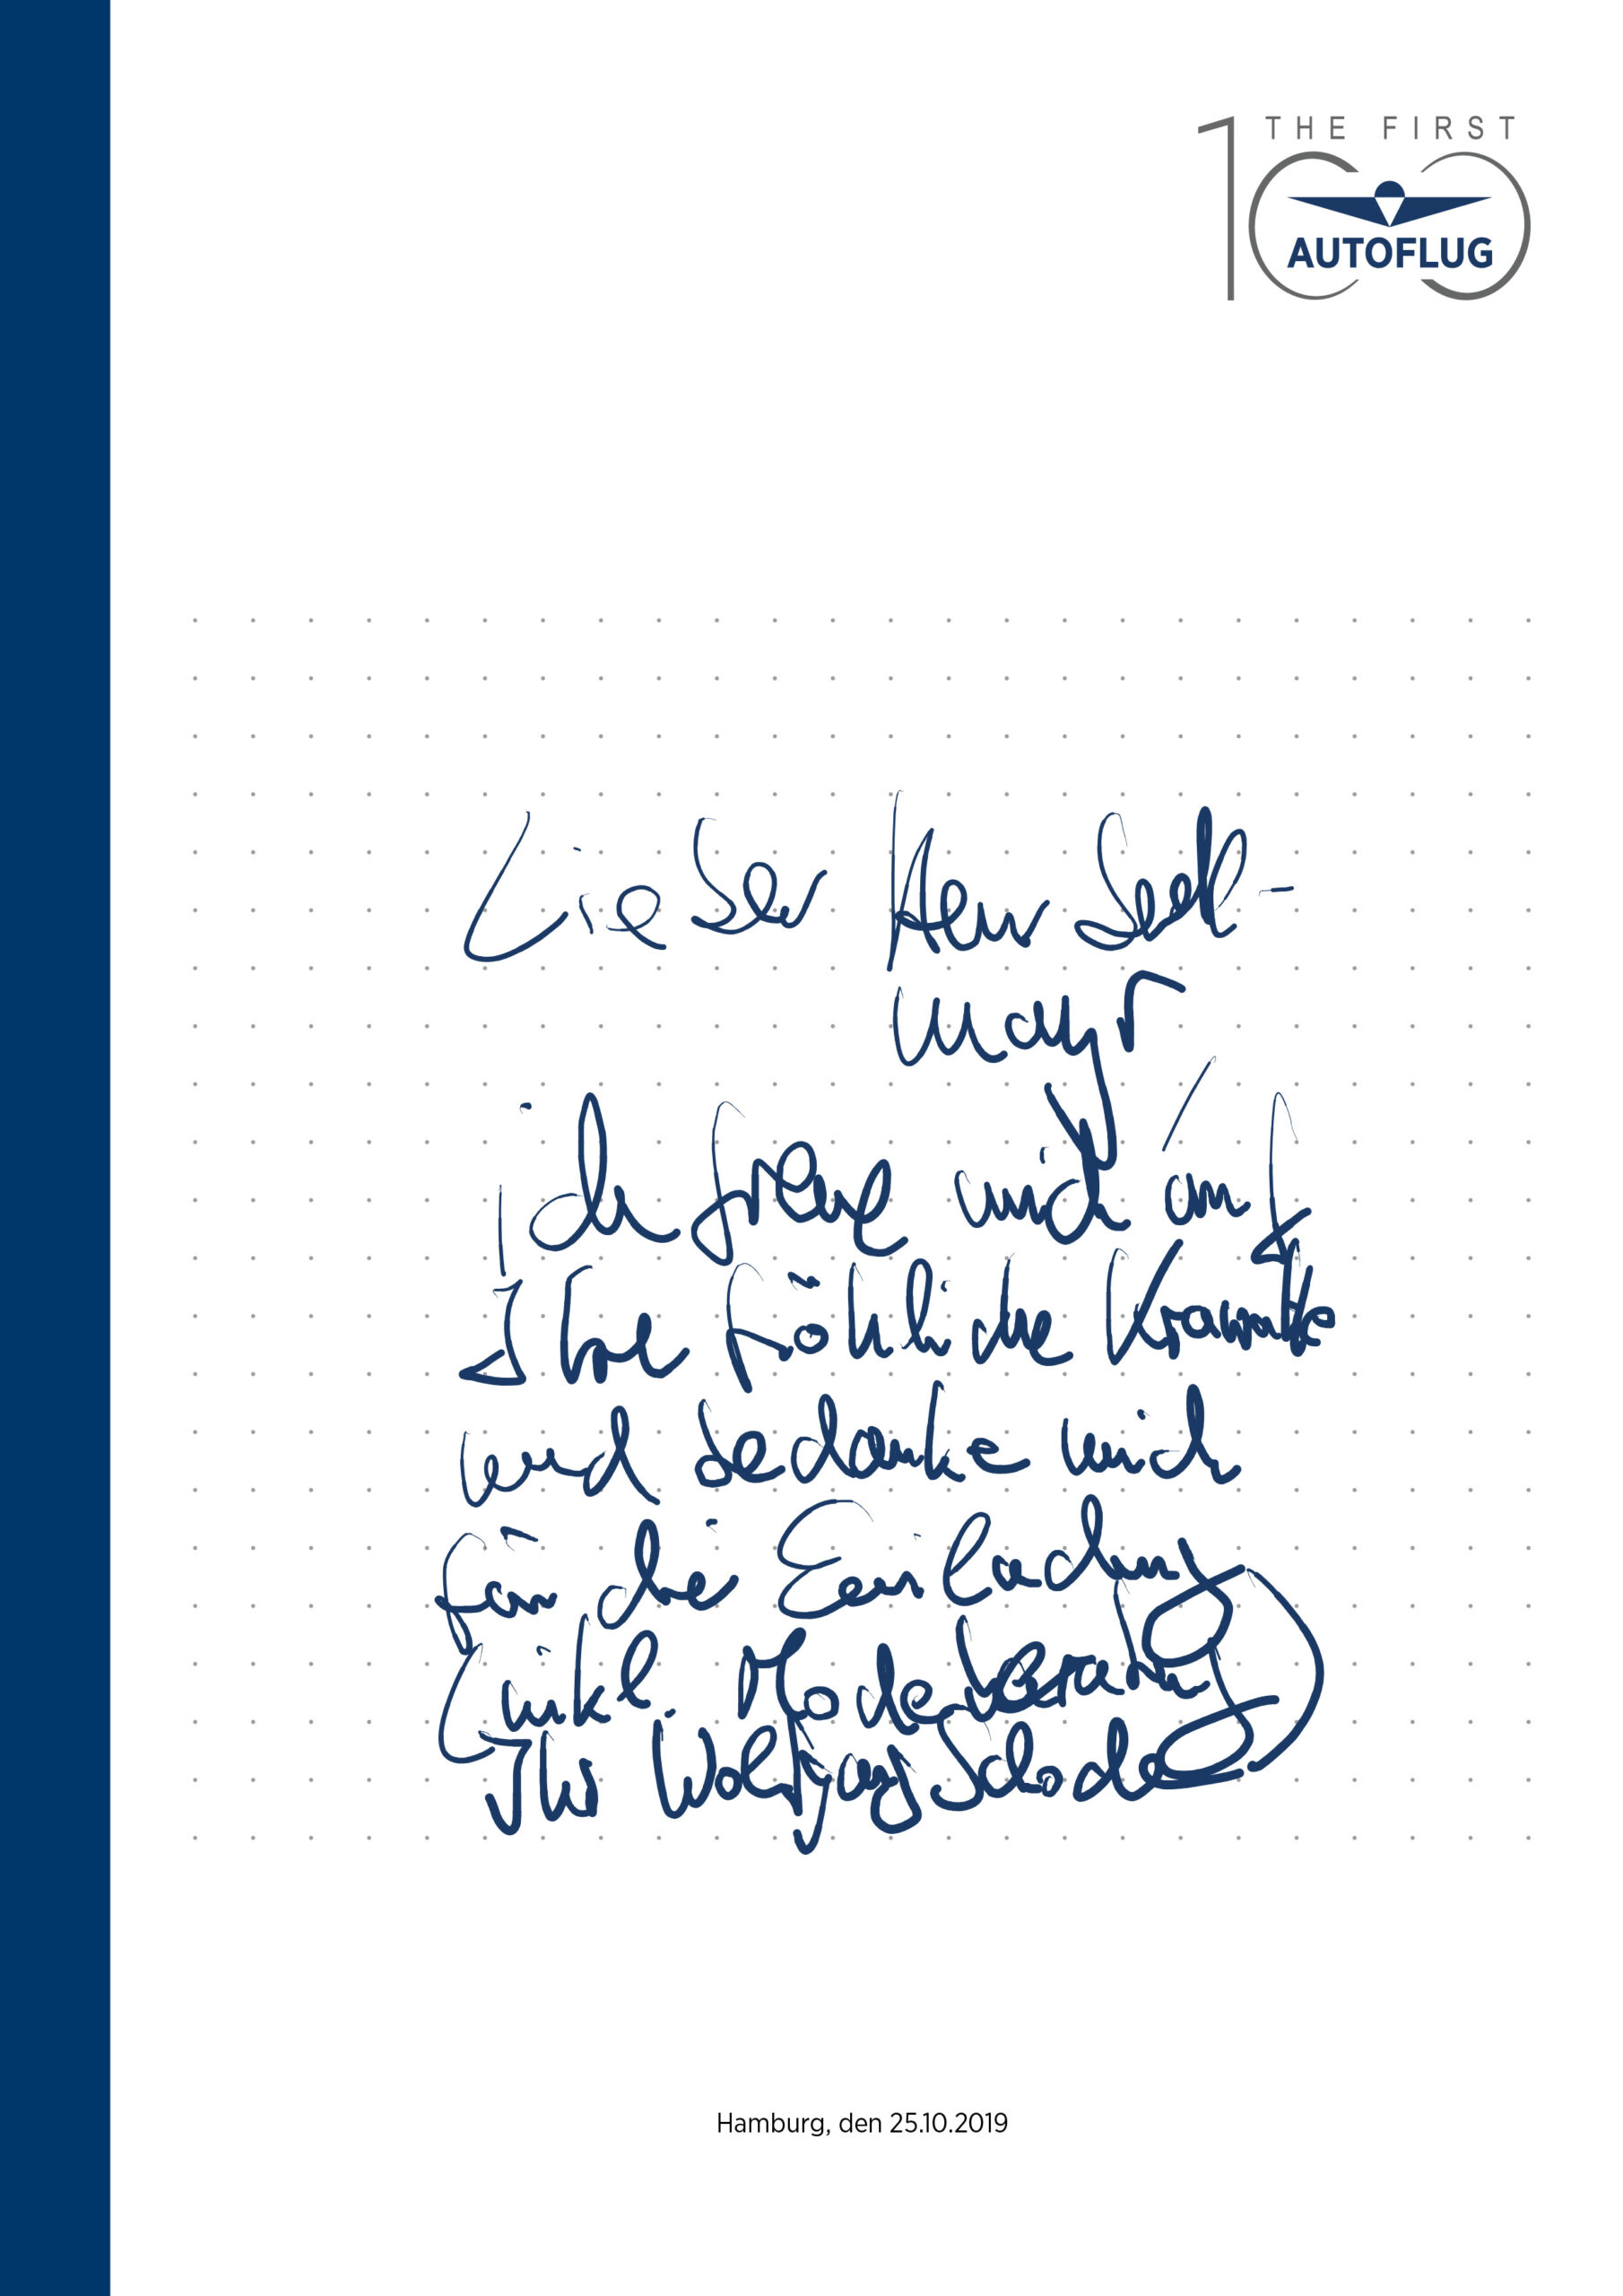 THE FIRST
100
AUTOFLUG
Lieber Herr Sedl-
mayr
ich freue mich auf
Ihre fröhliche Krawatte
und bedanke mich
für die Einladung
(inkl. Moderierung)
Ihr Wolfgang
Hamburg, den 25.10.2019